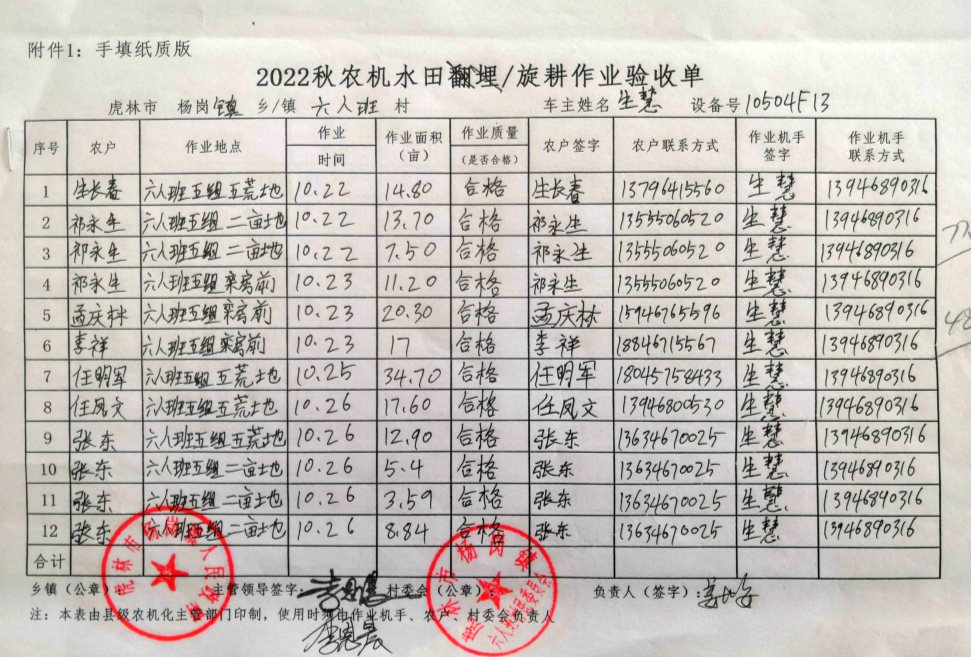 附件1：手填纸质版
2022秋农机水田翻埋/旋耕作业验收单
虎林市 杨岗镇 乡/镇 六人班 村 车主姓名 生慧 设备号 10504F13
序号 农户 作业地点 作业时间 作业面积（亩） 作业质量（是否合格） 农户签字 农户联系方式 作业机手签字 作业机手联系方式
1 生长春 六人班五组五荒地 10.22 14.80 合格 生长春 13796415560 生慧 13946890316
2 祁永生 六人班五组二亩地 10.22 13.70 合格 祁永生 13555060520 生慧 13946890316
3 祁永生 六人班五组二亩地 10.22 7.50 合格 祁永生 13555060520 生慧 13946890316
4 祁永生 六人班五组栾房前 10.23 11.20 合格 祁永生 13555060520 生慧 13946890316
5 孟庆林 六人班五组栾房前 10.23 20.30 合格 孟庆林 15946765596 生慧 13946890316
6 李祥 六人班五组栾房前 10.23 17 合格 李祥 18846715567 生慧 13946890316
7 任明军 六人班五组五荒地 10.25 34.70 合格 任明军 18045758433 生慧 13946890316
8 任凤文 六人班五组五荒地 10.26 17.60 合格 任凤文 13946800530 生慧 13946890316
9 张东 六人班五组五荒地 10.26 12.90 合格 张东 13634670025 生慧 13946890316
10 张东 六人班五组二亩地 10.26 5.4 合格 张东 13634670025 生慧 13946890316
11 张东 六人班五组二亩地 10.26 3.59 合格 张东 13634670025 生慧 13946890316
12 张东 六人班五组二亩地 10.26 8.84 合格 张东 13634670025 生慧 13946890316
合计
乡镇（公章） 主管领导签字： 村委会（公章） 负责人（签字）：
注：本表由县级农机化主管部门印制，使用时须由作业机手、农户、村委会负责人